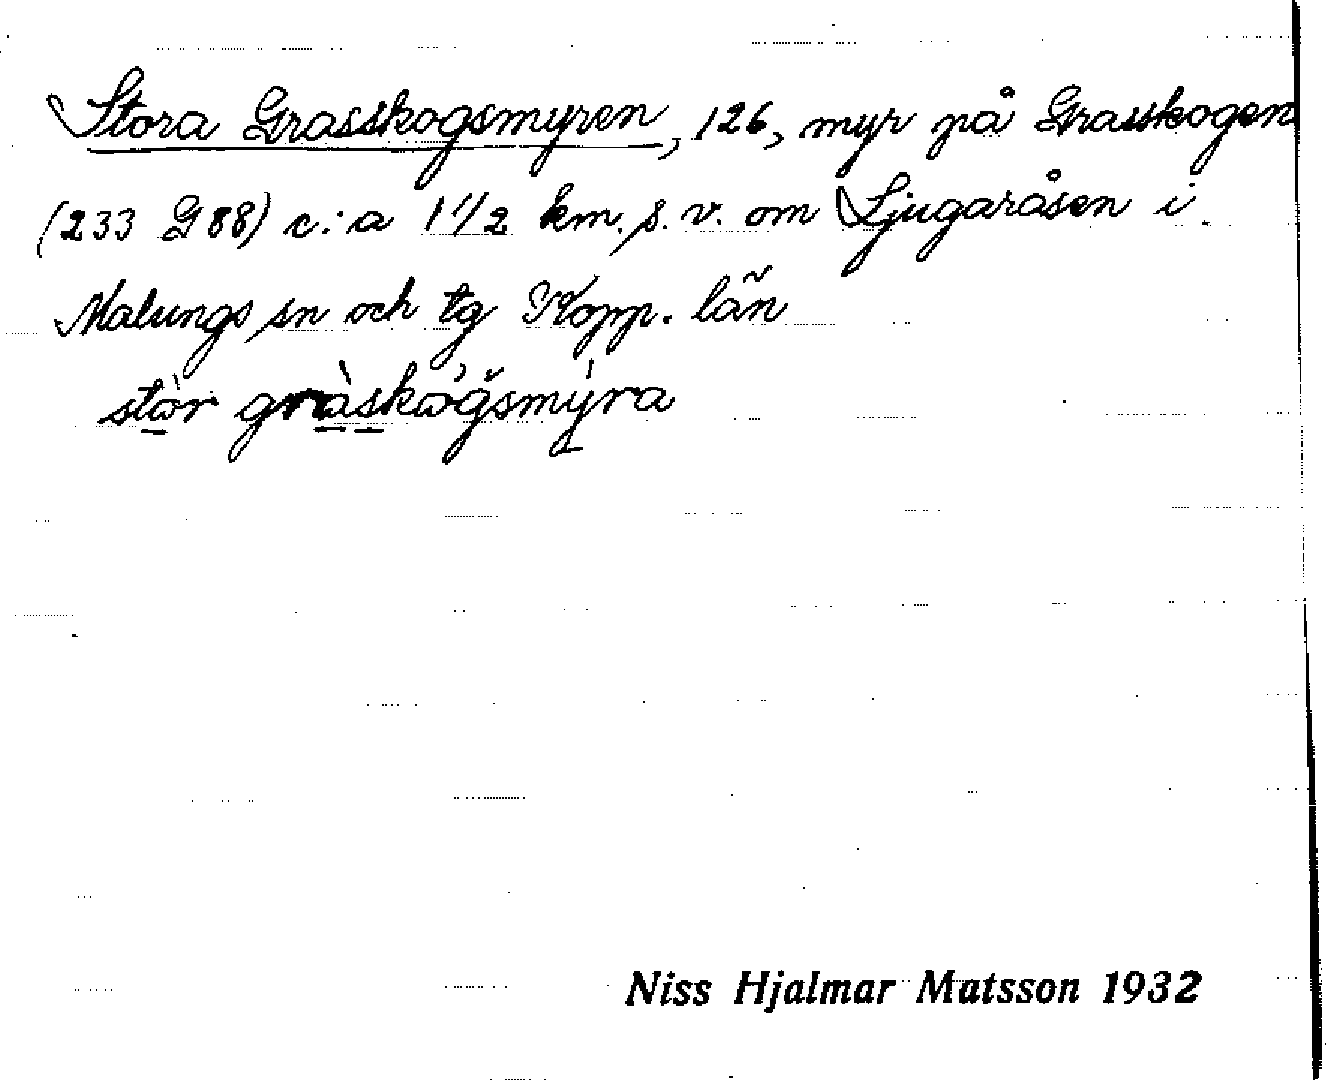 Stora Grasskogsmyren, 126, myr på Grasskogen
(233 G 88) c:a 1 1/2 km. s. v. om Ljugaråsen i
Malungs sn och tg Kopp. län
stor graskogsmyra
Niss Hjalmar Matsson 1932